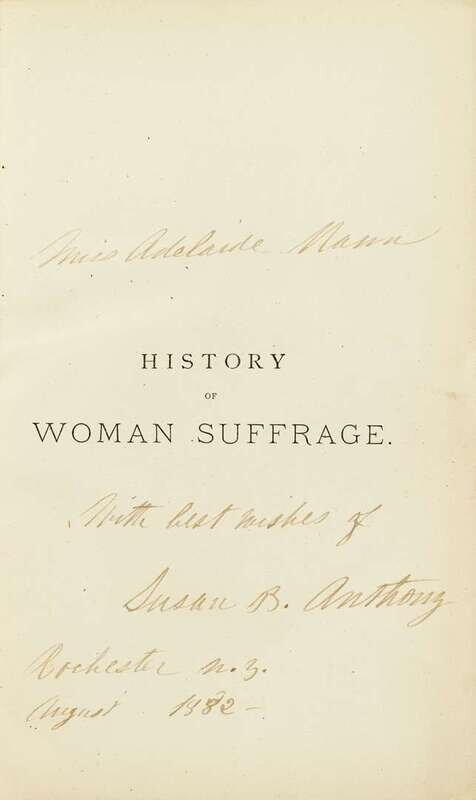 Miss Adelaide Mann
HISTORY
OF
WOMAN SUFFRAGE.
With best wishes of
Susan B. Anthony
Rochester N.Y.
August 1882 –